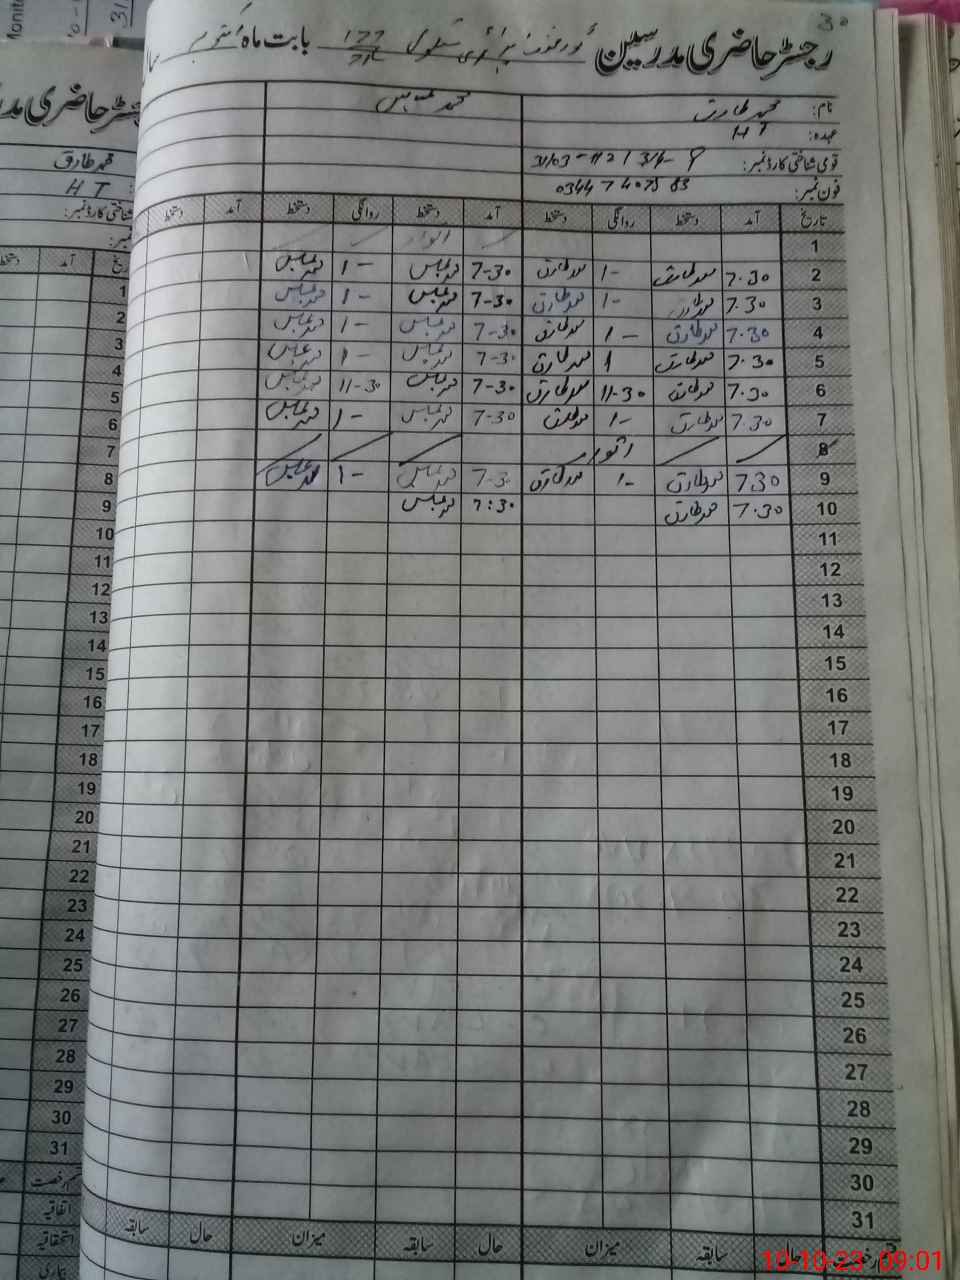 30
رجسٹر حاضری مدرسین گورنمنٹ پرائمری سکول 177 بابت ماہ اکتوبر
نام: محمد طارق محمد عباس
عہدہ: HT
قومی شناختی کارڈ نمبر:
فون نمبر:
تاریخ آمد دستخط روانگی دستخط آمد دستخط روانگی دستخط آمد دستخط
1 اتوار
2 7.30 محمد طارق 1- محمد طارق 7-30 محمد عباس 1- محمد عباس
3 7.30 محمد طارق 1- محمد طارق 7-30 محمد عباس 1- محمد عباس
4 7.30 محمد طارق 1- محمد طارق 7-30 محمد عباس 1- محمد عباس
5 7.30 محمد طارق 1 محمد طارق 7-30 محمد عباس 1- محمد عباس
6 7.30 محمد طارق 11-30 محمد طارق 7-30 محمد عباس 11-30 محمد عباس
7 7.30 محمد طارق 1- محمد طارق 7-30 محمد عباس 1- محمد عباس
8 اتوار
9 7.30 محمد طارق 1- محمد طارق 7-30 محمد عباس 1- محمد عباس
10 7.30 محمد طارق 7:30 محمد عباس
11
12
13
14
15
16
17
18
19
20
21
22
23
24
25
26
27
28
29
30
31
حال سابقہ میزان حال سابقہ میزان حال سابقہ
10-10-23 09:01
محمد طارق
HT
شناختی کارڈ نمبر:
آمد
1
2
3
4
5
6
7
8
9
10
11
12
13
14
15
16
17
18
19
20
21
22
23
24
25
26
27
28
29
30
31
اتفاقیہ
استحقاقیہ
بیماری